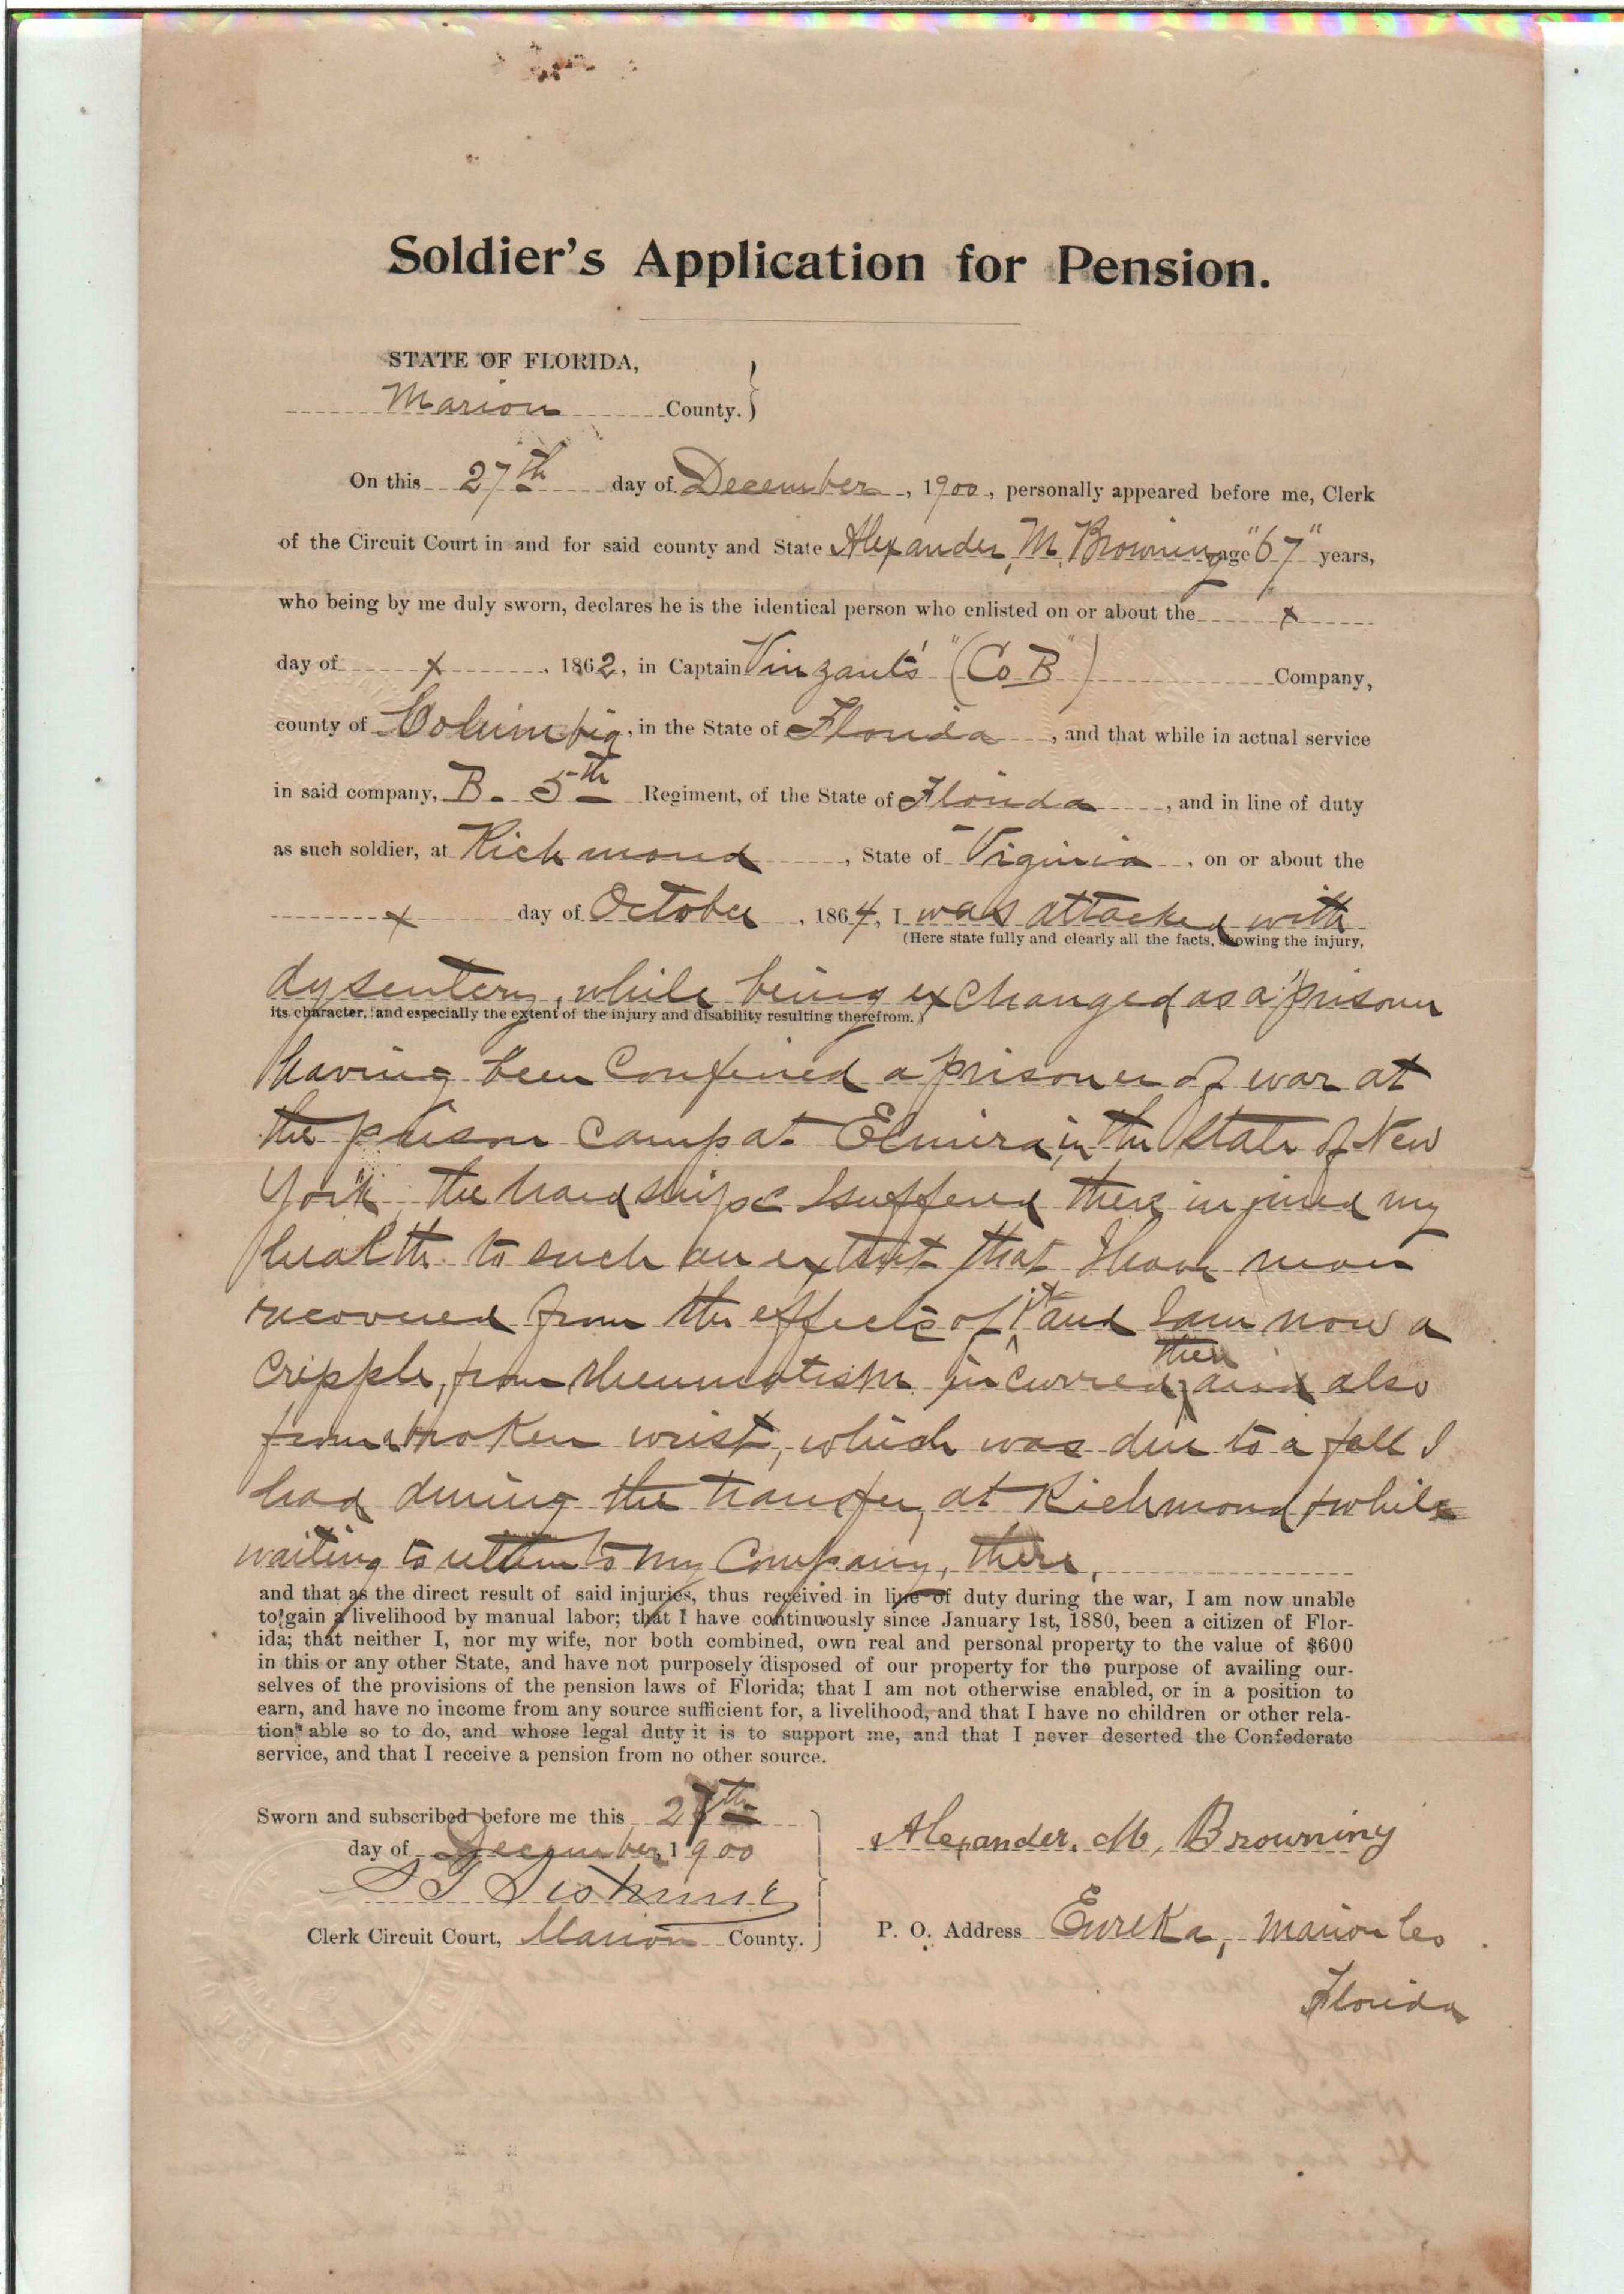 Soldier's Application for Pension.
STATE OF FLORIDA,
Marion County. }
On this 27th day of December, 1900, personally appeared before me, Clerk
of the Circuit Court in and for said county and State Alexander, M. Browning age "67" years,
who being by me duly sworn, declares he is the identical person who enlisted on or about the x
day of x, 1862, in Captain Vinzant's "(Co B") Company,
county of Columbia, in the State of Florida, and that while in actual service
in said company, B. 5th Regiment, of the State of Florida, and in line of duty
as such soldier, at Richmond, State of Virginia, on or about the
x day of October, 1864, I was attacked with
(Here state fully and clearly all the facts, showing the injury,
dysentery, while being exchanged as a prisoner
its character, and especially the extent of the injury and disability resulting therefrom.)
having been confined a prisoner of war at
the prison camp at Elmira, in the State of New
York, the hardships I suffered there injured my
health to such an extent that I have never
recovered from the effects of it and I am now a
cripple, from rheumatism incurred then and also
from a broken wrist, which was due to a fall I
had during the transfer, at Richmond, while
waiting to return to my Company, there,
and that as the direct result of said injuries, thus received in line of duty during the war, I am now unable
to gain a livelihood by manual labor; that I have continuously since January 1st, 1880, been a citizen of Flor-
ida; that neither I, nor my wife, nor both combined, own real and personal property to the value of $600
in this or any other State, and have not purposely disposed of our property for the purpose of availing our-
selves of the provisions of the pension laws of Florida; that I am not otherwise enabled, or in a position to
earn, and have no income from any source sufficient for, a livelihood, and that I have no children or other rela-
tion able so to do, and whose legal duty it is to support me, and that I never deserted the Confederate
service, and that I receive a pension from no other source.
Sworn and subscribed before me this 27th
day of December, 1900
Alexander. M. Browning
Clerk Circuit Court, Marion County.
P. O. Address Eureka, Marion Co
Florida